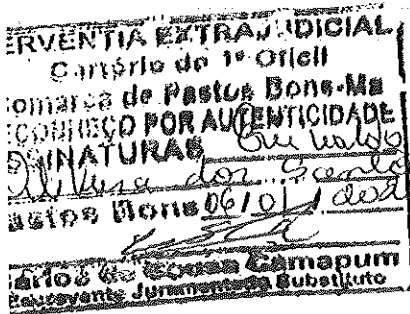 ERVENTIA EXTRAJUDICIAL
Cartório do 1º Ofício
omarca de Pastos Bons-Ma
ECONHEÇO POR AUTENTICIDADE
INATURAS
Oliveira dos Santos
astos Bons 06/01/
arlos de Sousa Camapum
Escrevente Juramentado Substituto